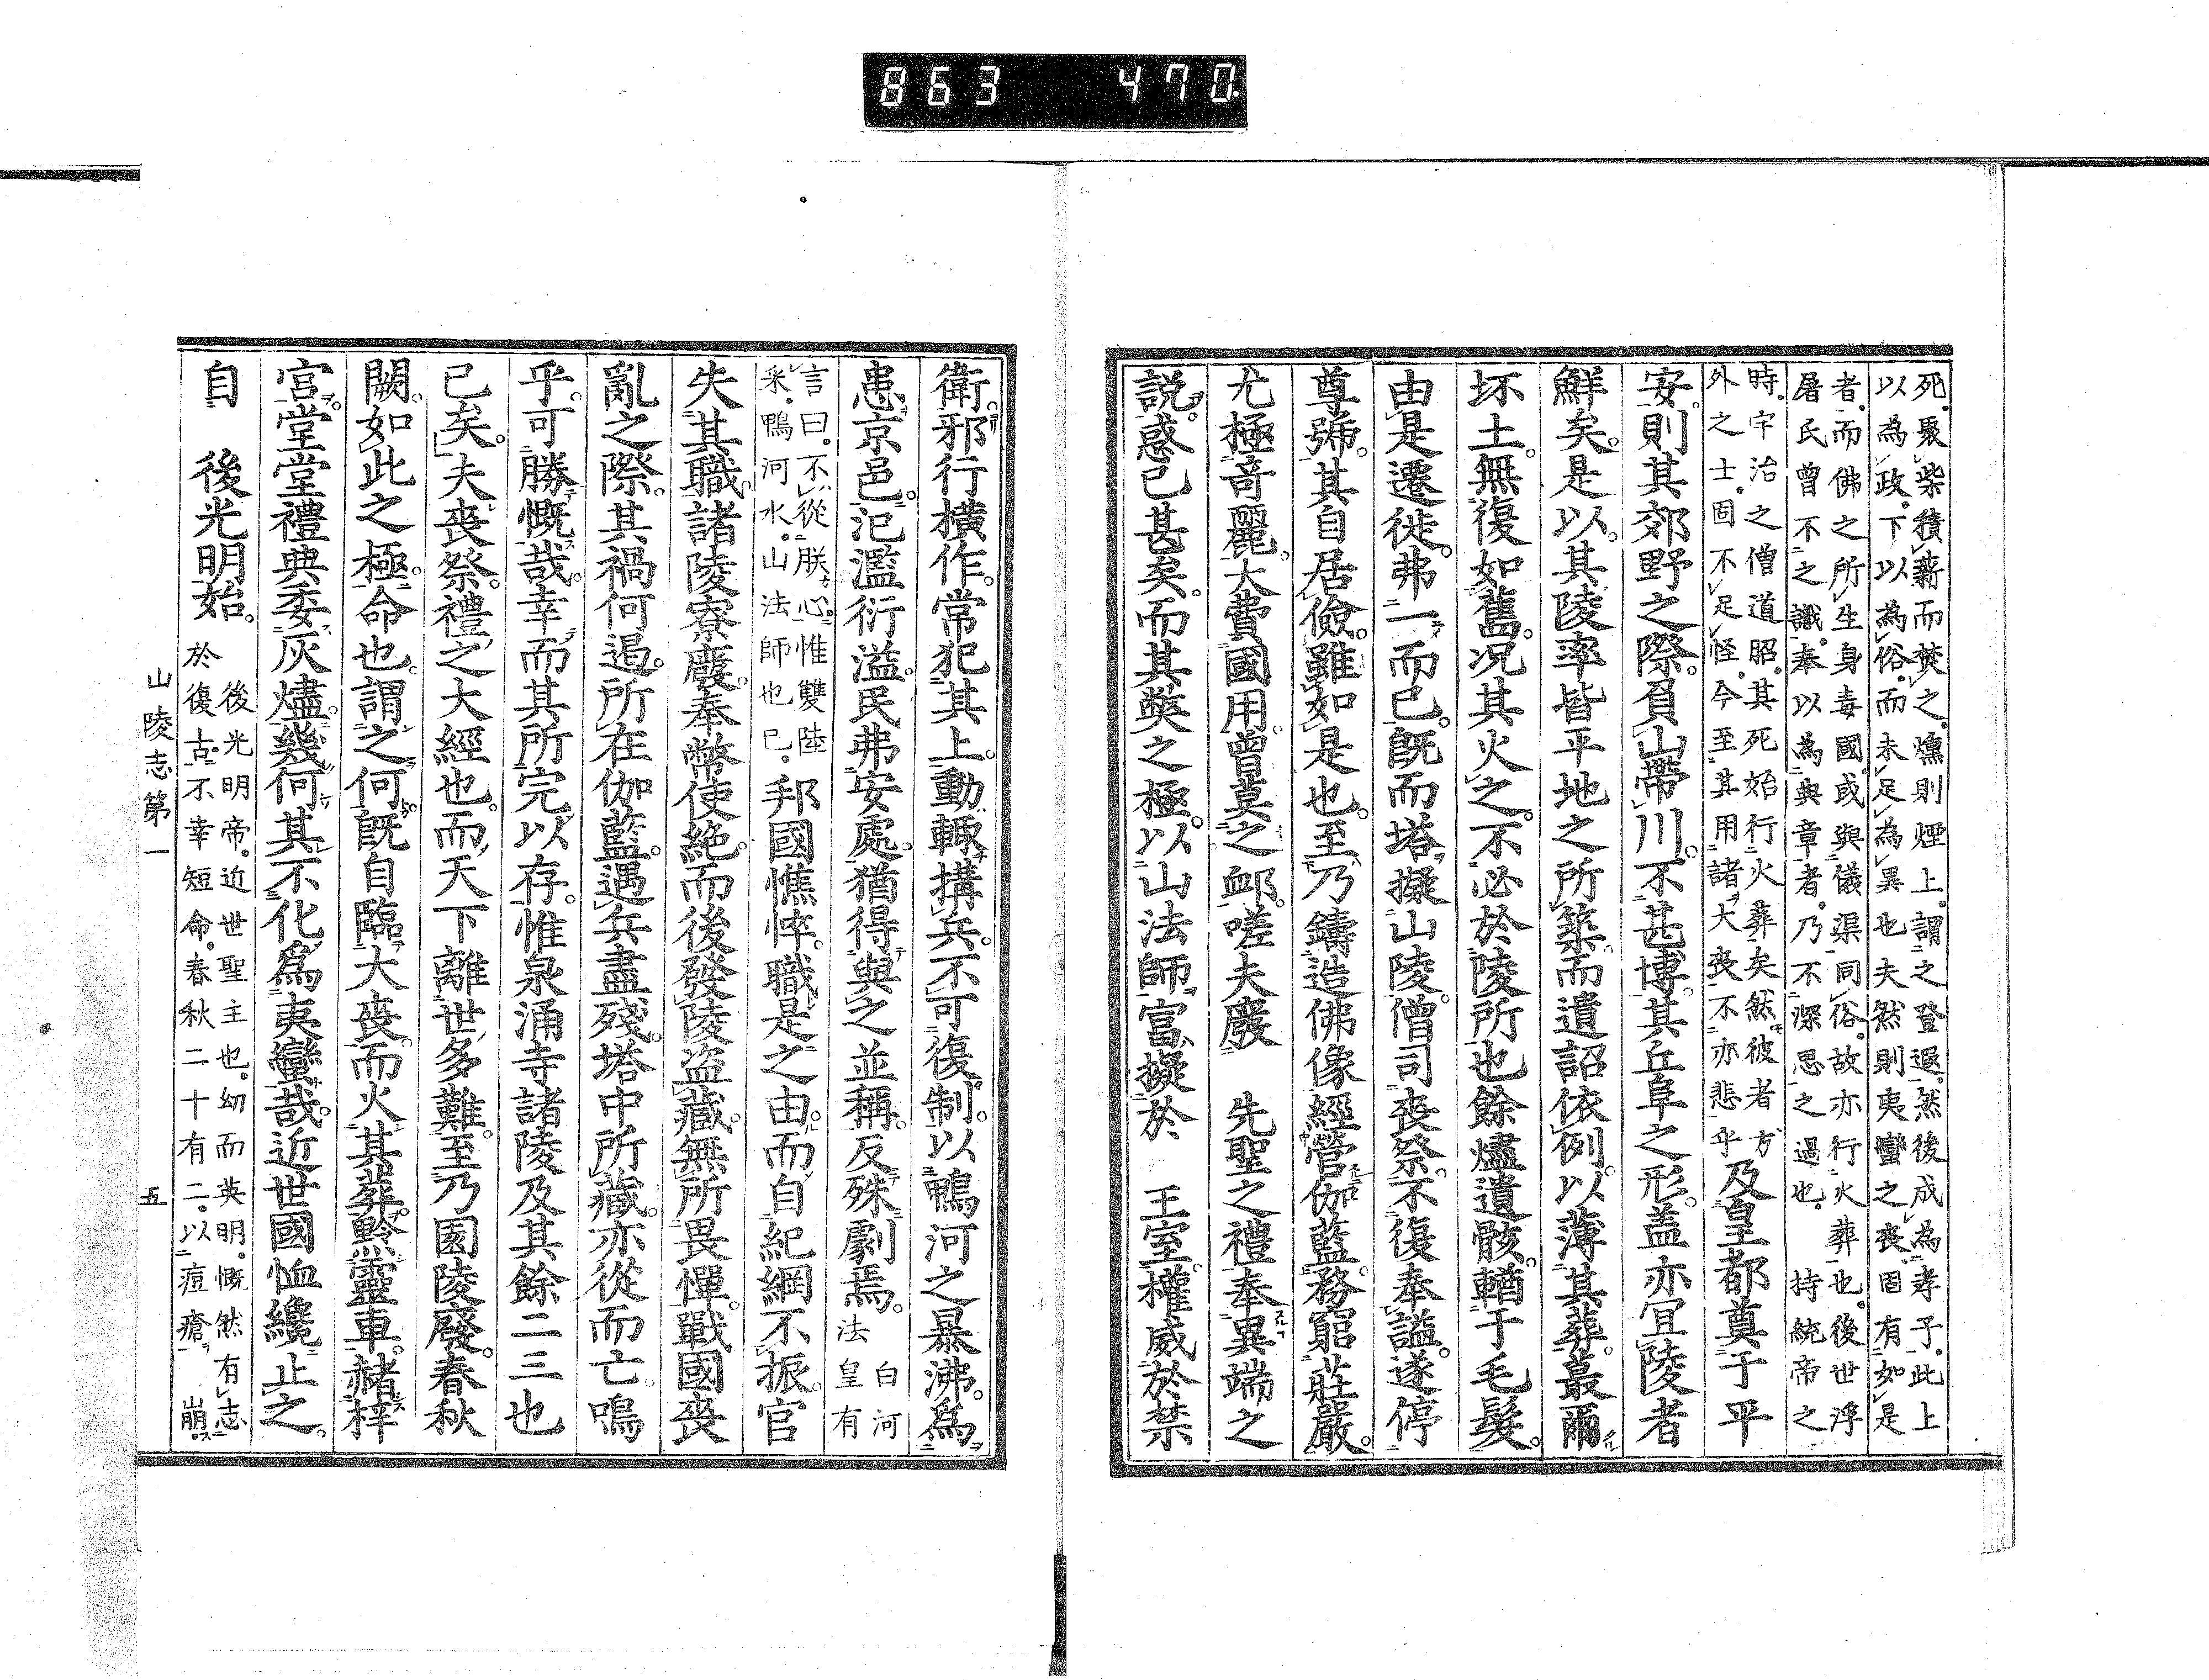 863 470.
死聚柴積薪而焚之燻則煙上謂之登遐然後成為孝子此上
以為政下以為俗而未足為異也夫然則夷蠻之喪固有如是
者而佛之所生身毒國或與儀渠同俗故亦行火葬也後世浮
屠民曾不之識奉以為典章者乃不深思之過也 持統帝之
時宇治之僧道昭其死始行火葬矣然彼者方
外之士固不足怪今至其用諸大喪不亦悲乎及皇都奠于平
安則其郊野之際負山帶川不甚博其丘阜之形盖亦宜陵者
鮮矣是以其陵率皆平地之所築而遺詔依例以薄其葬蕞爾
坏土無復如舊况其火之不必於陵所也餘燼遺骸輶于毛髮
由是遷徙弗一而已既而塔擬山陵僧司喪祭不復奉謚遂停
尊號其自居儉雖如是也至乃鑄造佛像經營伽藍務窮莊嚴
尤極奇麗大費國用曾莫之卹嗟夫廢 先聖之禮奉異端之
説惑已甚矣而其獘之極以山法師富擬於 王室權威於禁
衛邪行横作常犯其上動輙搆兵不可復制以鴨河之暴沸為
患京邑汜濫衍溢民弗安處猶得與之並稱反殊劇焉 白河
法皇有
言曰不從朕心惟雙陸
采鴨河水山法師也已邦國憔悴職是之由而自紀綱不振官
失其職諸陵寮廢奉幣使絶而後發陵盗藏無所畏憚戰國喪
亂之際其禍何遏所在伽藍遇兵盡殘塔中所藏亦從而亡嗚
乎可勝慨哉幸而其所完以存惟泉涌寺諸陵及其餘二三也
已矣夫喪祭禮之大經也而天下離世多難至乃園陵廢春秋
闕如此之極命也謂之何既自臨大喪而火其葬黔靈車赭梓
宮堂堂禮典委灰燼幾何其不化爲夷蠻哉近世國恤纔止之
自 後光明始 後光明帝近世聖主也幼而英明慨然有志
於復古不幸短命春秋二十有二以痘瘡 崩
山陵志第一 五